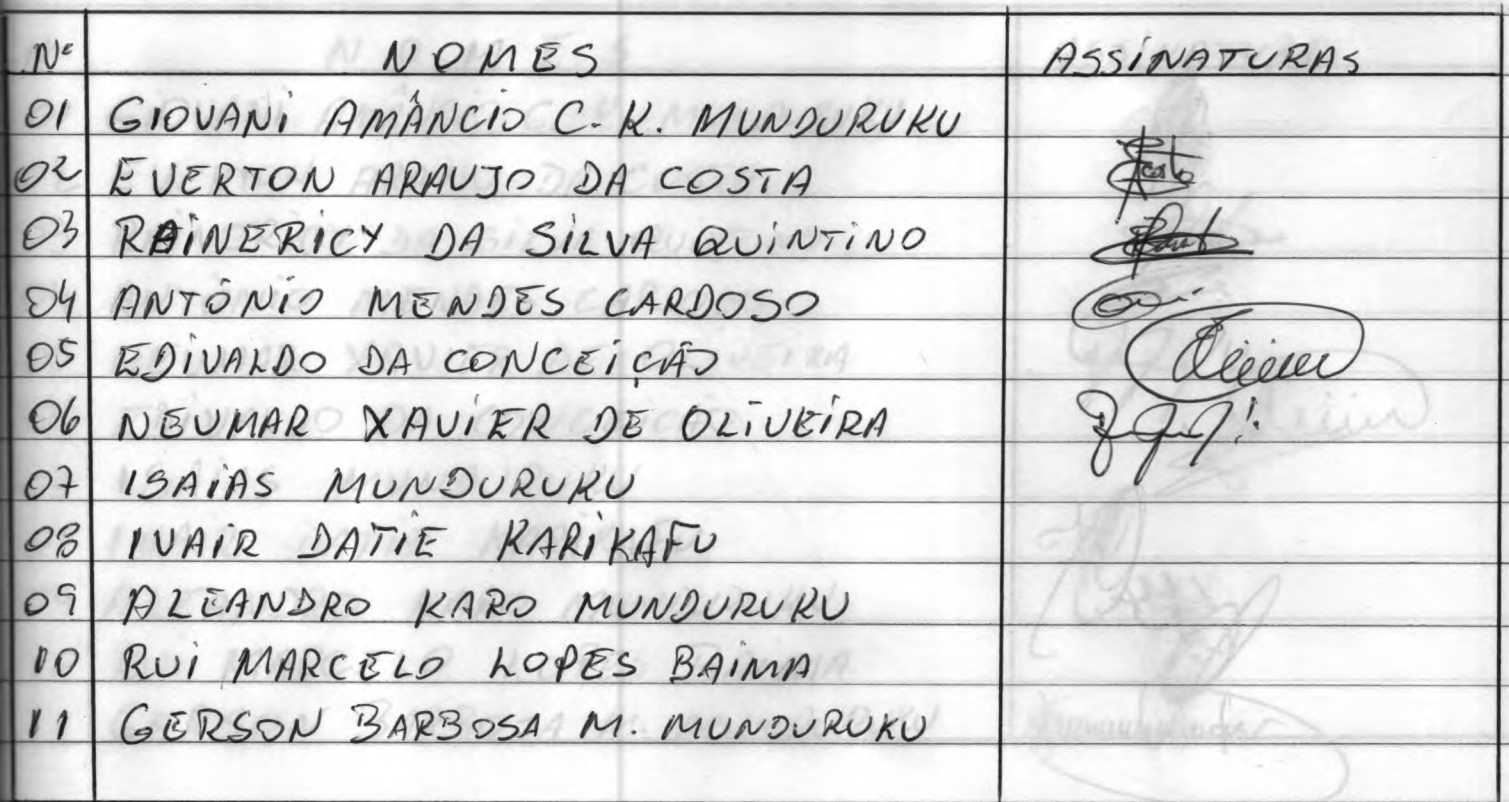 Nº NOMES ASSINATURAS
01 GIOVANI AMÂNCIO C. K. MUNDURUKU
02 EVERTON ARAUJO DA COSTA
03 RAINERICY DA SILVA QUINTINO
04 ANTÔNIO MENDES CARDOSO
05 EDIVALDO DA CONCEIÇÃO
06 NEUMAR XAVIER DE OLIVEIRA
07 ISAIAS MUNDURUKU
08 IVAIR DATIE KARIKAFU
09 ALEANDRO KARO MUNDURUKU
10 RUI MARCELO LOPES BAIMA
11 GERSON BARBOSA M. MUNDURUKU